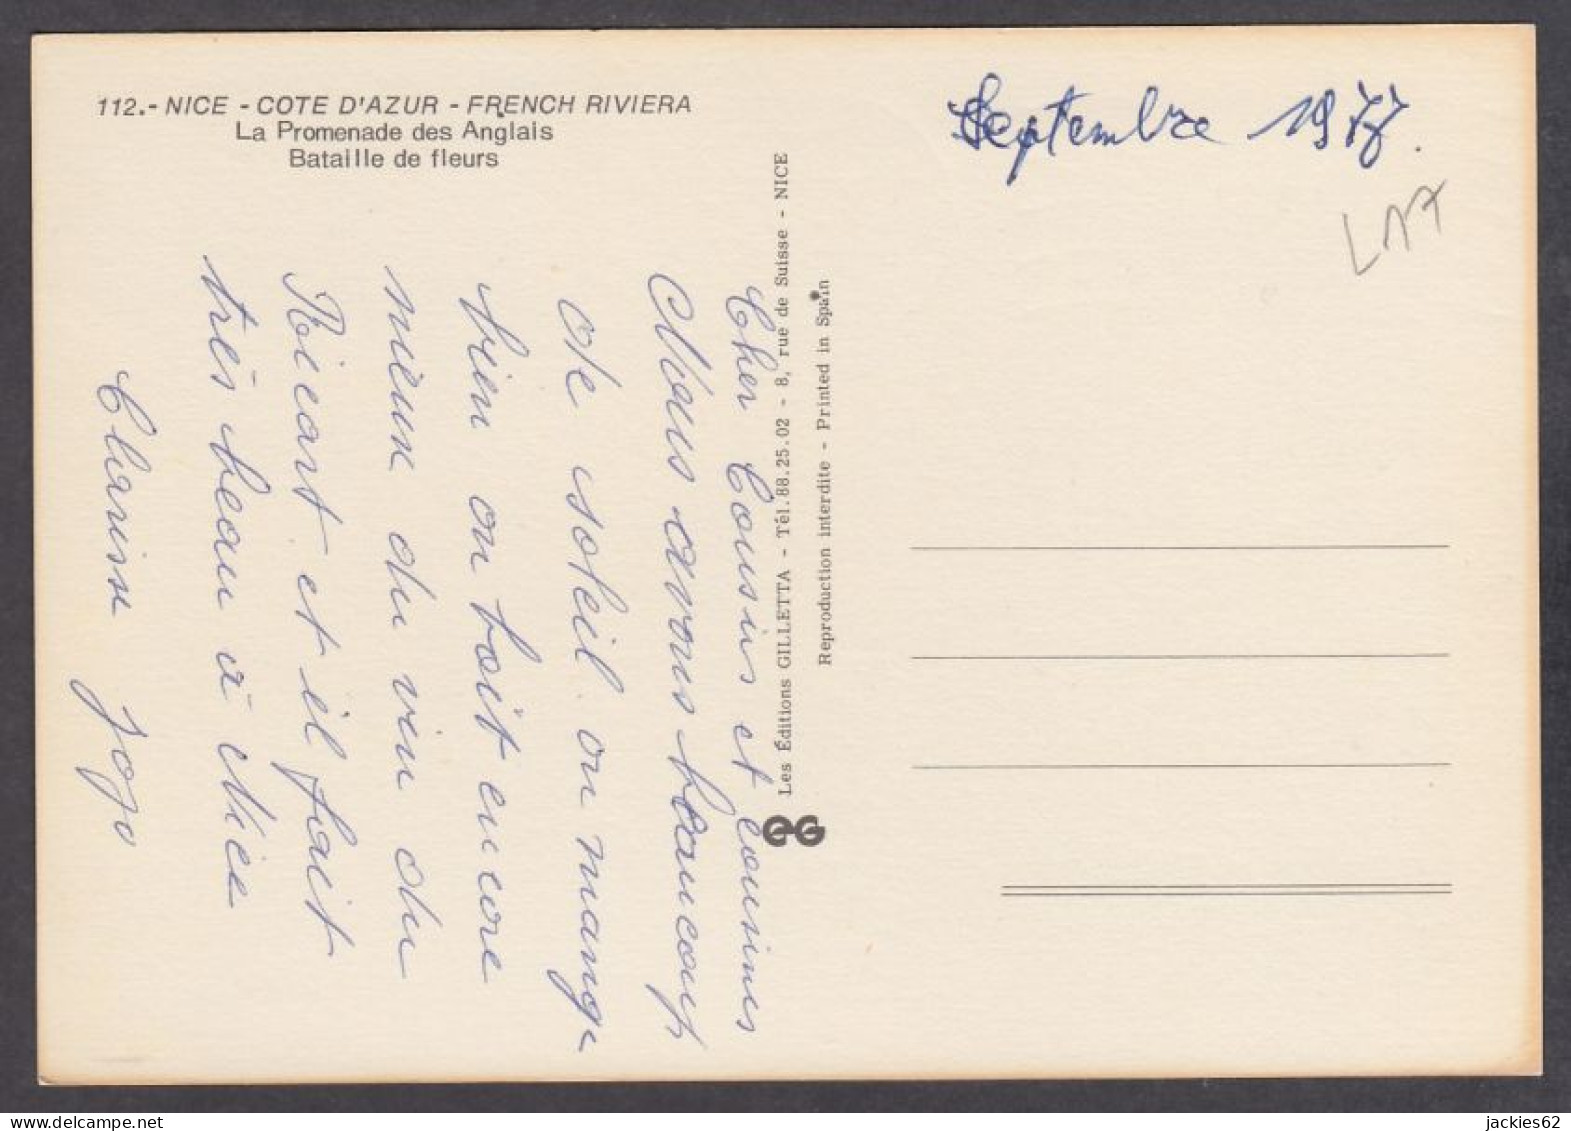 112.- NICE - COTE D'AZUR - FRENCH RIVIERA
La Promenade des Anglais
Bataille de fleurs
Septembre 1977.
L17
Cher Cousins et Cousines
Nous avons beaucoup
de soleil. on mange
bien on boit encore
mieux du vin du
Ricart et il fait
très beau à Nice
Clarisse Jojo
Les Éditions GILLETTA - Tél. 88.25.02 - 8, rue de Suisse - NICE
Reproduction interdite - Printed in Spain
eG
jackies62